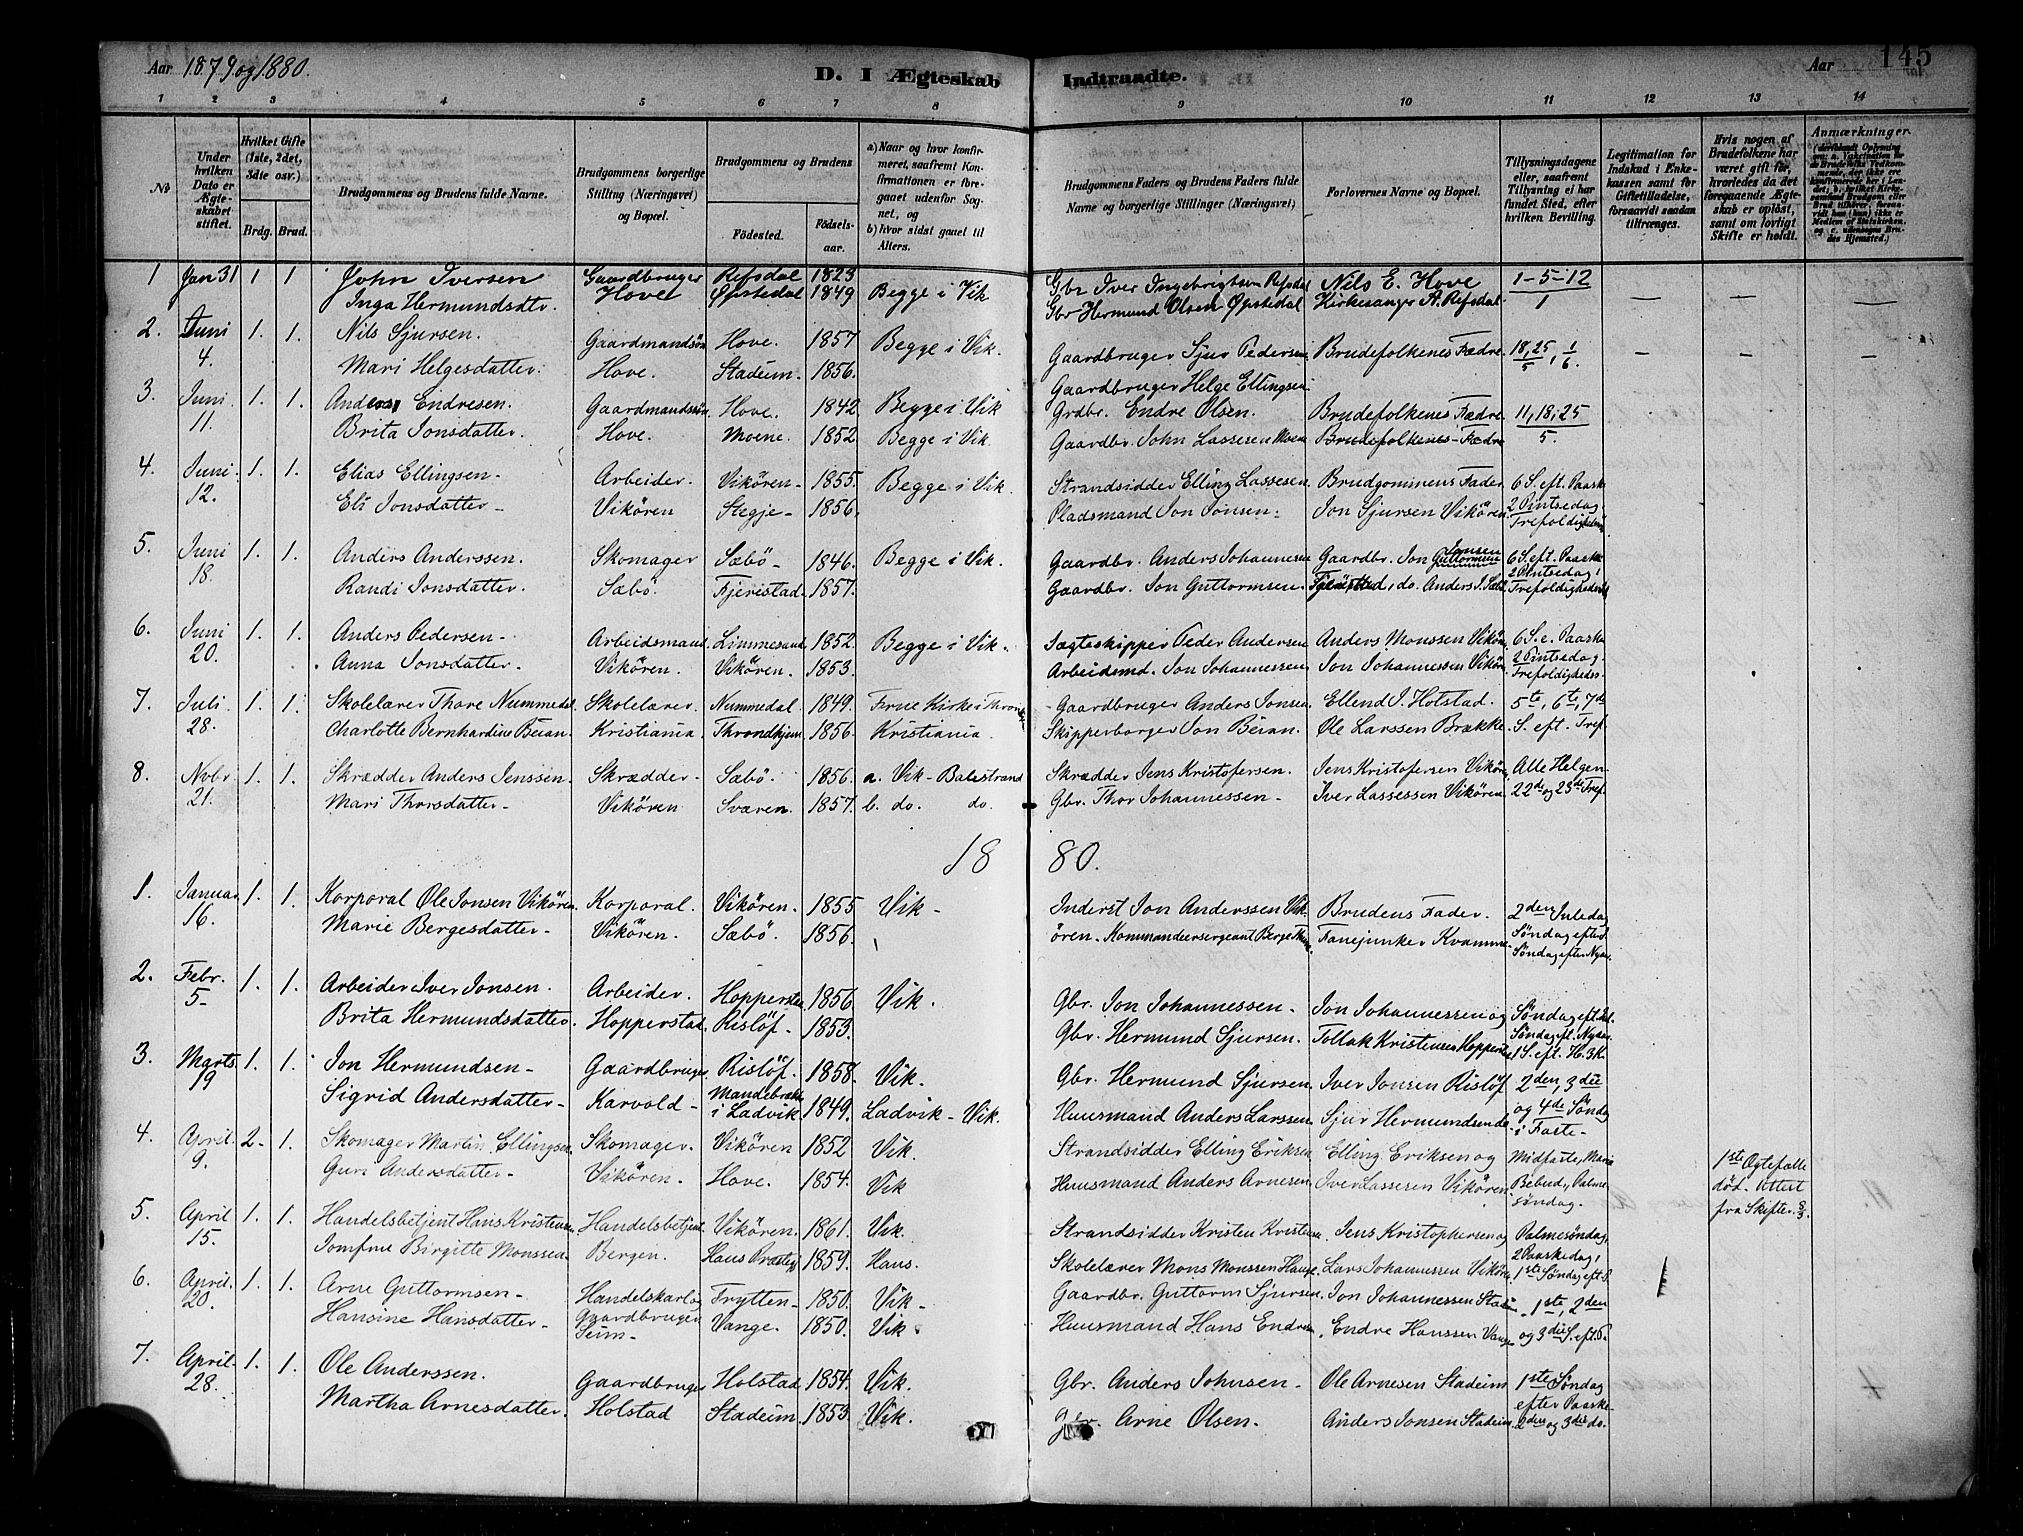 Aar 1879 og 1880.
D. I Ægteskab Indtraadte.
Aar 145
1 2 3 4 5 6 7 8 9 10 11 12 13 14
No
Under hvilken Dato er Ægteskabet stiftet.
Hvilket Gifte (1ste, 2det, 3die osv.)
Brdg. Brud.
Brudgommens og Brudens fulde Navne.
Brudgommens borgerlige Stilling (Næringsvei) og Bopæl.
Brudgommens og Brudens
Fødested. Fødselsaar.
a) Naar og hvor konfirmeret, saafremt Konfirmationen er foregaaet udenfor Sognet, og
b) hvor sidst gaaet til Alters.
Brudgommens Faders og Brudens Faders fulde Navne og borgerlige Stillinger (Næringsvei)
Forlovernes Navne og Bopæl.
Tillysningsdagene eller, saafremt Tillysning ei har fundet Sted, efter hvilken Bevilling.
Legitimation for Indskud i Enkekassen samt for Giftetilladelse, forsaavidt saadan tiltrænges.
Hvis nogen af Brudefolkene har været gift før, hvorledes da det foregaaende Ægteskab er opløst, samt om lovligt Skifte er holdt.
Anmærkninger
1 Jan 31 1 1 John Iversen Gaardbruger Refsdal 1823 Gbr Iver Ingebrigtsen Refsdal Nils E. Hove 1-5-12
Inga Hermundsdtr. Hove Øpstedal 1849 Begge i Vik Gbr Hermund Olsen Øpstedal Kirkesanger A. Refsdal 1 — — —
2. Juni 1. 1. Nils Sjursen. Gaardmandsøn Hove. 1857 Begge i Vik. Gaardbruger Sjur Pedersen Brudefolkenes Fædre. 18,25/5, 1/6. — — —
4 Mari Helgesdatter. Hove. Stadeim. 1856. Gaardbruger Helge Ellingsen
3. Juni 1. 1. Anders Endresen. Gaardmandssøn Hove. 1842 Begge i Vik Grdbr. Endre Olsen. Brudefolkenes Fædre 11, 18, 25
11. Brita Jonsdatter. Hove. Moene. 1852 Begge i Vik. Gaardbr. John Lassesen Moene Brudefolkenes Fædre 5.
4. Juni 1. 1. Elias Ellingsen Arbeider. Vikören 1855. Begge i Vik. Strandsidder Elling Lassesen Brudgommens Fader. 6 S. eft. Paaske
12. Eli Jonsdatter Vikören Stegje 1856. Pladsmand Jon Jonsen Jon Sjursen Vikören 2 Pintsedag
5. Juni 1. 1. Anders Anderssen. Skomager Sæbö 1846. Begge i Vik. Gaardbr. Anders Johannesen Gaardbr. Jon Guttormsen 6 S. eft. Paaske 2 Pintsedag
18. Randi Jonsdatter. Sæbö. Fjeristad 1857. Gaardbr. Jon Guttormsen. do. Anders J. Sæbö
6. Juni 1. 1. Anders Pedersen Arbeidsmand Limmesand 1852. Begge i Vik. Jægteskipper Peder Andersen Anders Monssen Vikören 6 S. e. Paaske
20. Anna Jonsdatter. Vikören. Vikören. 1853. Arbeidsmd. Jon Johannessen Jon Johannessen Vikören 2 Pintsedag
7. Juli 1. 1. Skolelærer Thore Nummedal Skolelærer. Nummedal 1849. Frue Kirke i Throndhj. Gaardbruger Anders Jonsen Ellend J. Holstad. 5te, 6te, 7de
28. Charlotte Bernhardine Beian Kristiania Throndhjem 1856. Kristiania. Skipperborger Jon Beian. Ole Larssen Brække S. eft. Tref
8. Novbr 1. 1. Skrædder Anders Jenssen. Skrædder Sæbö. 1856. a. Vik - Balestrand Skrædder Jens Kristofersen. Jens Kristofersen Vikören Alle Helgen
21. Mari Thorsdatter Vikören Sværen 1857. b. do. do. Gbr. Thor Johannessen Iver Lassessen Vikören. 22de og 23de Tref.
1880.
1. Januar 1. 1. Korporal Ole Jonsen Vikören. Korporal. Vikören. 1855 Vik Inderst Jon Anderssen Vik- Brudens Fader. 2den Juledag
16. Marie Bergesdatter Vikören. Sæbö. 1856. ören. Kommandeersergeant Berge Fanejunker Kvamme Søndag efter Søndag efter Nyaar
2. Febr. 1. 1. Arbeider Iver Jonsen. Arbeider. Hopperstad 1856 Vik. Gbr. Jon Johannessen Jon Johannessen og Søndag eft. Jul
5 Brita Hermundsdatter. Hopperstad. Rislöf 1853. Gbr. Hermund Sjursen. Tollak Kristensen Hopperstad Søndag eft. Nyaar 1 S. eft. H.3.K.
3. Marts 1. 1. Jon Hermundsen Gaardbruger Rislöf. 1858. Vik. Gbr. Hermund Sjursen Iver Jonsen Rislöf 2den, 3die
19 Sigrid Andersdatter Karvold i Ladvik 1849. Ladvik - Vik. Huusmand Anders Larssen Sjur Hermundsen do og 4de Søndag i Faste
4. April 2. 1. Skomager Martin Ellingsen Skomager. Vikören 1852 Vik. Strandsidder Elling Eriksen Elling Eriksen og Midfaste, Maria 1ste Ægtefælle
9. Guri Andersdatter Vikören. Hove. 1854. Vik Huusmand Anders Arnesen Iver Lassesen Vikören. Bebud., Palmesøndag. død. Attest fra Skifter.
5. April 1. 1. Handelsbetjent Hans Kristensen Handelsbetjent Vikören. 1861. Vik. Strandsidder Kristen Kristensen Jens Kristophersen og Palmesøndag,
15. Jomfrue Birgitte Monssen. Bergen. Hans Præstegj. 1859. Hans. Skolelærer Mons Monssen Hauge Lars Johannessen Vikören 2 Paaskedag, 1ste Søndag eft. P.
6. April 1. 1. Arne Guttormsen Handelskarl og Frytten 1850. Vik Gaardbr. Guttorm Sjursen Jon Johannessen Stadeim 1ste, 2den
20. Hansine Hansdatter Gaardbruger Seim Vange. 1850. Vik Huusmand Hans Endresen Endre Hanssen Vange og 3die S. eft. P.
7. April 1. 1. Ole Anderssen. Gaardbruger Holstad 1854. Vik. Gbr. Anders Johnsen Ole Arnesen Stadeim 1ste Søndag efter Paaske
28. Martha Arnesdatter. Holstad Stadeim 1853. Vik. Gbr Arne Olsen. Anders Jonsen Stadeim. 2den og 3die do.